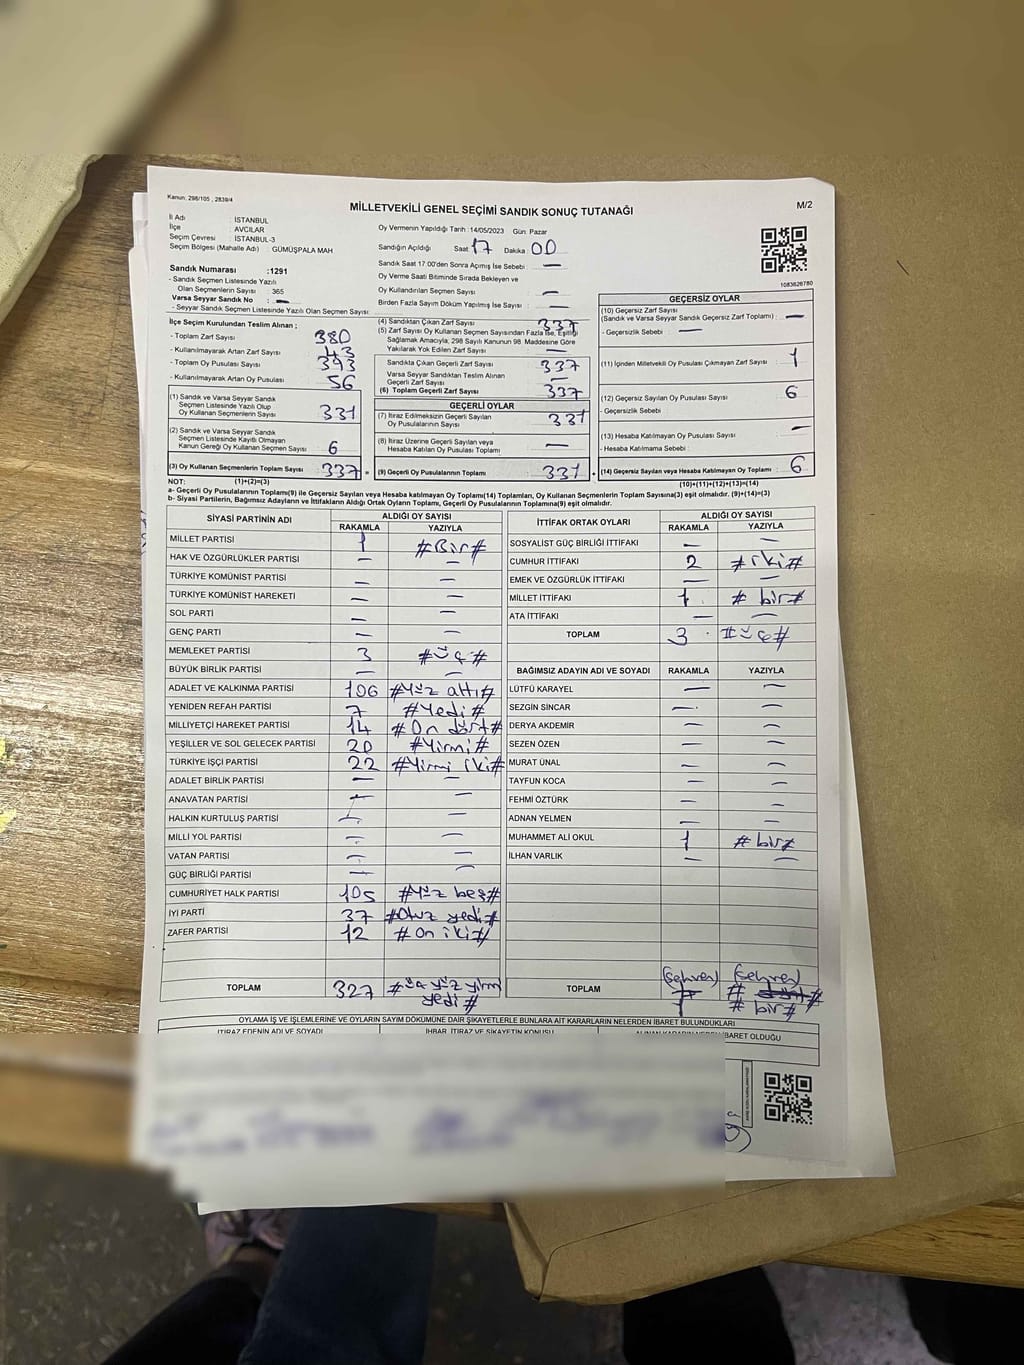 Kanun, 298/105 , 2839/4
MİLLETVEKİLİ GENEL SEÇİMİ SANDIK SONUÇ TUTANAĞI
M/2
İl Adı : İSTANBUL
İlçe : AVCILAR
Seçim Çevresi : İSTANBUL-3
Seçim Bölgesi (Mahalle Adı) : GÜMÜŞPALA MAH
Sandık Numarası :1291
- Sandık Seçmen Listesinde Yazılı
Olan Seçmenlerin Sayısı : 365
Varsa Seyyar Sandık No : —
- Seyyar Sandık Seçmen Listesinde Yazılı Olan Seçmen Sayısı:
Oy Vermenin Yapıldığı Tarih :14/05/2023 Gün: Pazar
Sandığın Açıldığı Saat :17 Dakika :00
Sandık Saat 17.00'den Sonra Açmış İse Sebebi : —
Oy Verme Saati Bitiminde Sırada Bekleyen ve
Oy Kullandırılan Seçmen Sayısı : —
Birden Fazla Sayım Döküm Yapılmış İse Sayısı : —
1083626780
İlçe Seçim Kurulundan Teslim Alınan ;
- Toplam Zarf Sayısı : 380
- Kullanılmayarak Artan Zarf Sayısı : 43
- Toplam Oy Pusulası Sayısı : 393
- Kullanılmayarak Artan Oy Pusulası : 56
(1) Sandık ve Varsa Seyyar Sandık
Seçmen Listesinde Yazılı Olup
Oy Kullanan Seçmenlerin Sayısı : 331
(2) Sandık ve Varsa Seyyar Sandık
Seçmen Listesinde Kayıtlı Olmayan
Kanun Gereği Oy Kullanan Seçmen Sayısı : 6
(3) Oy Kullanan Seçmenlerin Toplam Sayısı : 337 =
(1)+(2)=(3)
(4) Sandıktan Çıkan Zarf Sayısı : 337
(5) Zarf Sayısı Oy Kullanan Seçmen Sayısından Fazla İse, Eşitliği
Sağlamak Amacıyla, 298 Sayılı Kanunun 98. Maddesine Göre
Yakılarak Yok Edilen Zarf Sayısı : —
Sandıkta Çıkan Geçerli Zarf Sayısı : 337
Varsa Seyyar Sandıktan Teslim Alınan
Geçerli Zarf Sayısı : —
(6) Toplam Geçerli Zarf Sayısı : 337
GEÇERLİ OYLAR
(7) İtiraz Edilmeksizin Geçerli Sayılan
Oy Pusulalarının Sayısı : 331
(8) İtiraz Üzerine Geçerli Sayılan veya
Hesaba Katılan Oy Pusulaları Toplamı : —
(9) Geçerli Oy Pusulalarının Toplamı : 331 +
GEÇERSİZ OYLAR
(10) Geçersiz Zarf Sayısı
(Sandık ve Varsa Seyyar Sandık Geçersiz Zarf Toplamı) : —
- Geçersizlik Sebebi : —
(11) İçinden Milletvekili Oy Pusulası Çıkmayan Zarf Sayısı : 1
(12) Geçersiz Sayılan Oy Pusulası Sayısı : 6
- Geçersizlik Sebebi
(13) Hesaba Katılmayan Oy Pusulası Sayısı : —
- Hesaba Katılmama Sebebi :
(14) Geçersiz Sayılan veya Hesaba Katılmayan Oy Toplamı : 6
(10)+(11)+(12)+(13)=(14)
NOT:
a- Geçerli Oy Pusulalarının Toplamı(9) ile Geçersiz Sayılan veya Hesaba katılmayan Oy Toplamı(14) Toplamları, Oy Kullanan Seçmenlerin Toplam Sayısına(3) eşit olmalıdır. (9)+(14)=(3)
b- Siyasi Partilerin, Bağımsız Adayların ve İttifakların Aldığı Ortak Oyların Toplamı, Geçerli Oy Pusulalarının Toplamına(9) eşit olmalıdır.
SİYASİ PARTİNİN ADI ALDIĞI OY SAYISI
RAKAMLA YAZIYLA
MİLLET PARTİSİ 1 #Bir#
HAK VE ÖZGÜRLÜKLER PARTİSİ — —
TÜRKİYE KOMÜNİST PARTİSİ — —
TÜRKİYE KOMÜNİST HAREKETİ — —
SOL PARTİ — —
GENÇ PARTİ — —
MEMLEKET PARTİSİ 3 #üç#
BÜYÜK BİRLİK PARTİSİ — —
ADALET VE KALKINMA PARTİSİ 106 #Yüz altı#
YENİDEN REFAH PARTİSİ 7 #Yedi#
MİLLİYETÇİ HAREKET PARTİSİ 14 #On dört#
YEŞİLLER VE SOL GELECEK PARTİSİ 20 #Yirmi#
TÜRKİYE İŞÇİ PARTİSİ 22 #Yirmi iki#
ADALET BİRLİK PARTİSİ — —
ANAVATAN PARTİSİ — —
HALKIN KURTULUŞ PARTİSİ — —
MİLLİ YOL PARTİSİ — —
VATAN PARTİSİ — —
GÜÇ BİRLİĞİ PARTİSİ — —
CUMHURİYET HALK PARTİSİ 105 #Yüz beş#
İYİ PARTİ 37 #Otuz yedi#
ZAFER PARTİSİ 12 #On iki#
TOPLAM 327 #üç yüz yirmi
yedi#
İTTİFAK ORTAK OYLARI ALDIĞI OY SAYISI
RAKAMLA YAZIYLA
SOSYALİST GÜÇ BİRLİĞİ İTTİFAKI — —
CUMHUR İTTİFAKI 2 #iki#
EMEK VE ÖZGÜRLÜK İTTİFAKI — —
MİLLET İTTİFAKI 1 #bir#
ATA İTTİFAKI — —
TOPLAM 3 #üç#
BAĞIMSIZ ADAYIN ADI VE SOYADI RAKAMLA YAZIYLA
LÜTFÜ KARAYEL — —
SEZGİN SİNCAR — —
DERYA AKDEMİR — —
SEZEN ÖZEN — —
MURAT ÜNAL — —
TAYFUN KOCA — —
FEHMİ ÖZTÜRK — —
ADNAN YELMEN — —
MUHAMMET ALİ OKUL 1 #bir#
İLHAN VARLIK — —
(Sehven) (Sehven)
TOPLAM 1 #bir#
OYLAMA İŞ VE İŞLEMLERİNE VE OYLARIN SAYIM DÖKÜMÜNE DAİR ŞİKAYETLERLE BUNLARA AİT KARARLARIN NELERDEN İBARET BULUNDUKLARI
İTİRAZ EDENİN ADI VE SOYADI İHBAR, İTİRAZ VE ŞİKAYETİN KONUSU ALINAN KARARIN NEDEN İBARET OLDUĞU